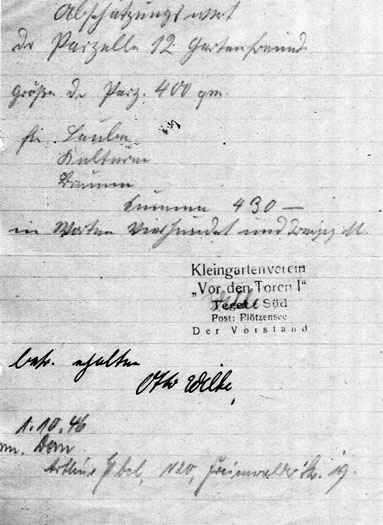 Abschätzungswert
der Parzelle 12 Gartenfreund.
größe d. Parz. 400 qm.
für Laube
Kulturen
Summa 430 —
in Worten Vierhundert und dreißig M.
Kleingartenverein
„Vor den Toren I"
Tegel Süd
Post: Plötzensee
Der Vorstand
betr. erhalten
Otto Wilke,
1.10.46
an. Dom
Arthur Ebel, N20, Freienwalder Str. 19.